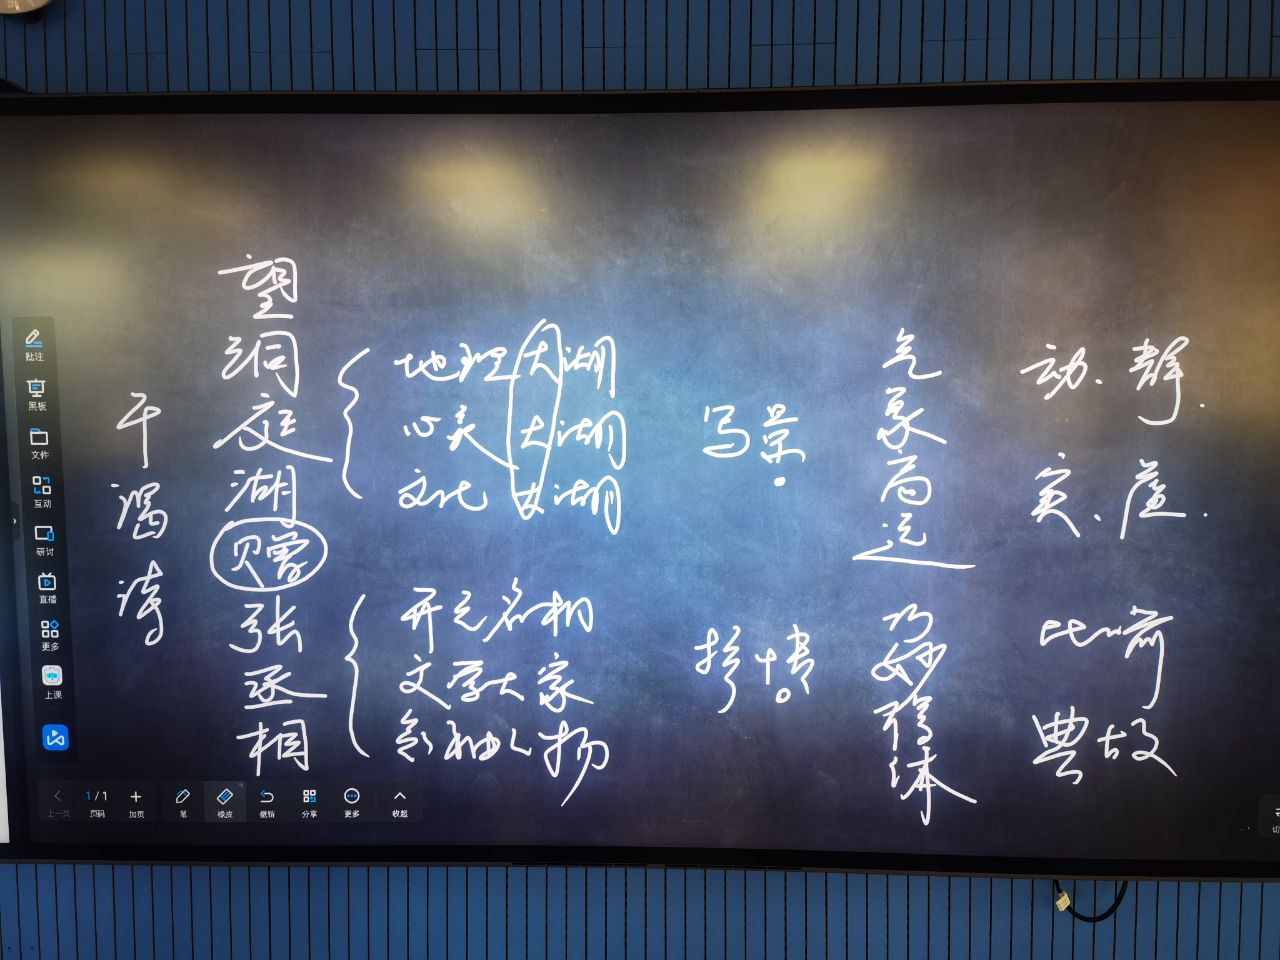 干谒诗
望洞庭湖赠张丞相
地理大湖
心灵大湖
文化大湖
开元名相
文学大家
领袖人物
写景
抒情
气象高远
巧妙得体
动、静
实、虚
比喻
典故
批注
黑板
文件
互动
研讨
直播
更多
上课
上一页
1/1
页码
加页
笔
橡皮
撤销
分享
更多
收起